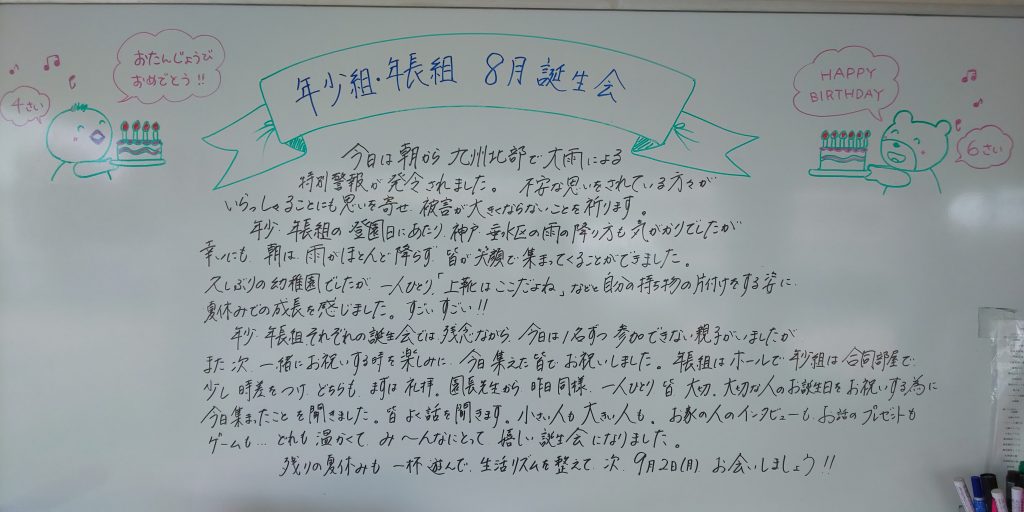 おたんじょうび
おめでとう!!
4さい
年少組・年長組 8月誕生会
HAPPY
BIRTHDAY
6さい
今日は朝から 九州北部で大雨による
特別警報が発令されました。 不安な思いをされている方々が
いらっしゃることにも思いを寄せ 被害が大きくならないことを祈ります。
年少・年長組の登園日にあたり、神戸 垂水区の雨の降り方も気がかりでしたが
幸いにも、朝は雨がほとんど降らず、皆が笑顔で集まってくることができました。
久しぶりの幼稚園でしたが、一人ひとり、「上靴はここだよね」などと自分の持ち物の片付けをする姿に
夏休みでの成長を感じました。すごいすごい!!
年少・年長組それぞれの誕生会では、残念ながら、今日は1名ずつ参加できない親子がいましたが
また次、一緒にお祝いする時を楽しみに、今日集えた皆でお祝いしました。年長組はホールで年少組は合同部屋で、
少し時差をつけ、どちらも、まずは礼拝。園長先生から昨日同様、一人ひとり皆大切、大切な人のお誕生日をお祝いする為に
今日集まったことを聞きました。皆よく話を聞きます。小さい人も大きい人も。お家の人のインタビューも、お話のプレゼントも
ゲームも…どれも温かくて、み〜んなにとって 嬉しい誕生会になりました。
残りの夏休みも 一杯遊んで、生活リズムを整えて、次、9月2日(月) お会いしましょう!!